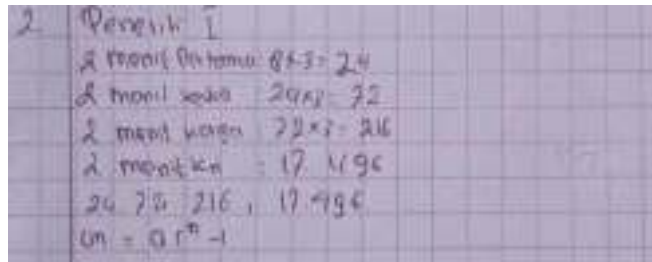 2. Peneliti I
2 menit Pertama: 8×3 = 24
2 menit kedua 24×3 = 72
2 menit ketiga 72×3 = 216
2 menit ke : 17 496
24 72 216, 17.496
Un = ar^n -1